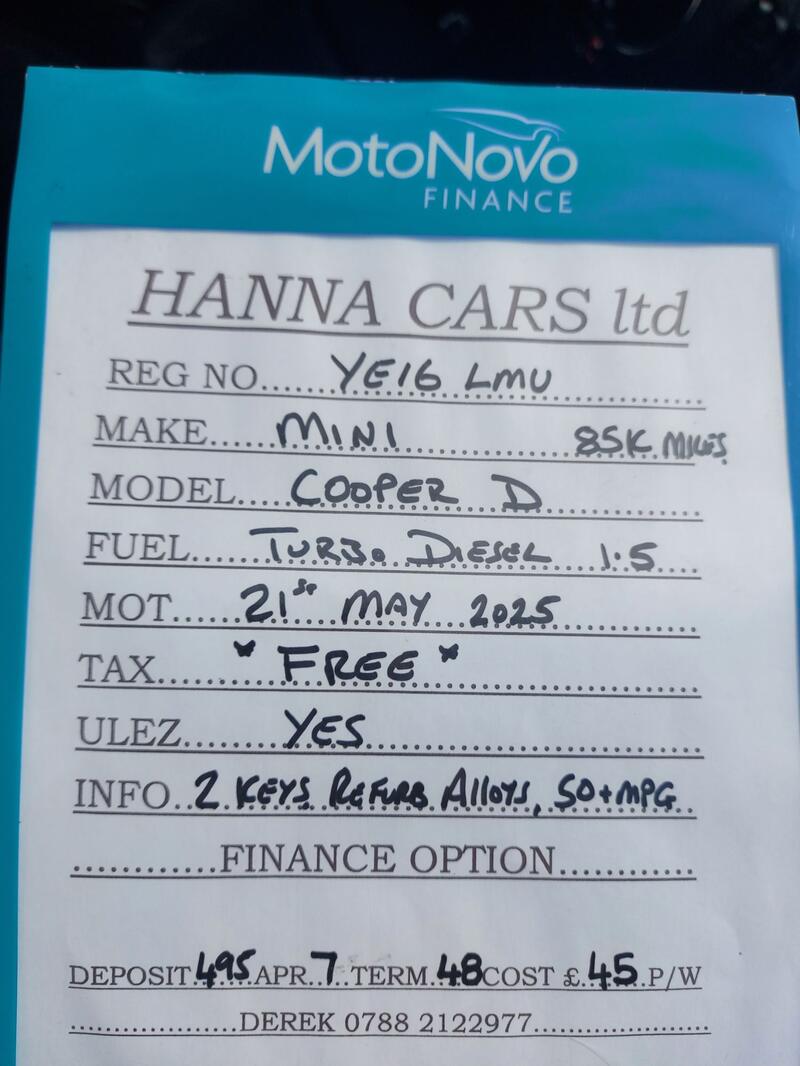 MotoNovo
FINANCE
HANNA CARS ltd
REG NO......YE16 LMU
MAKE......MINI 85K MILES
MODEL....COOPER D
FUEL......TURBO DIESEL 1.5
MOT......21st MAY 2025
TAX......"FREE"
ULEZ.......YES
INFO..2 KEYS REFURB Alloys, 50+MPG
............FINANCE OPTION............
DEPOSIT.495 APR..7..TERM.48 COST £.45.P/W
..................DEREK 0788 2122977..................